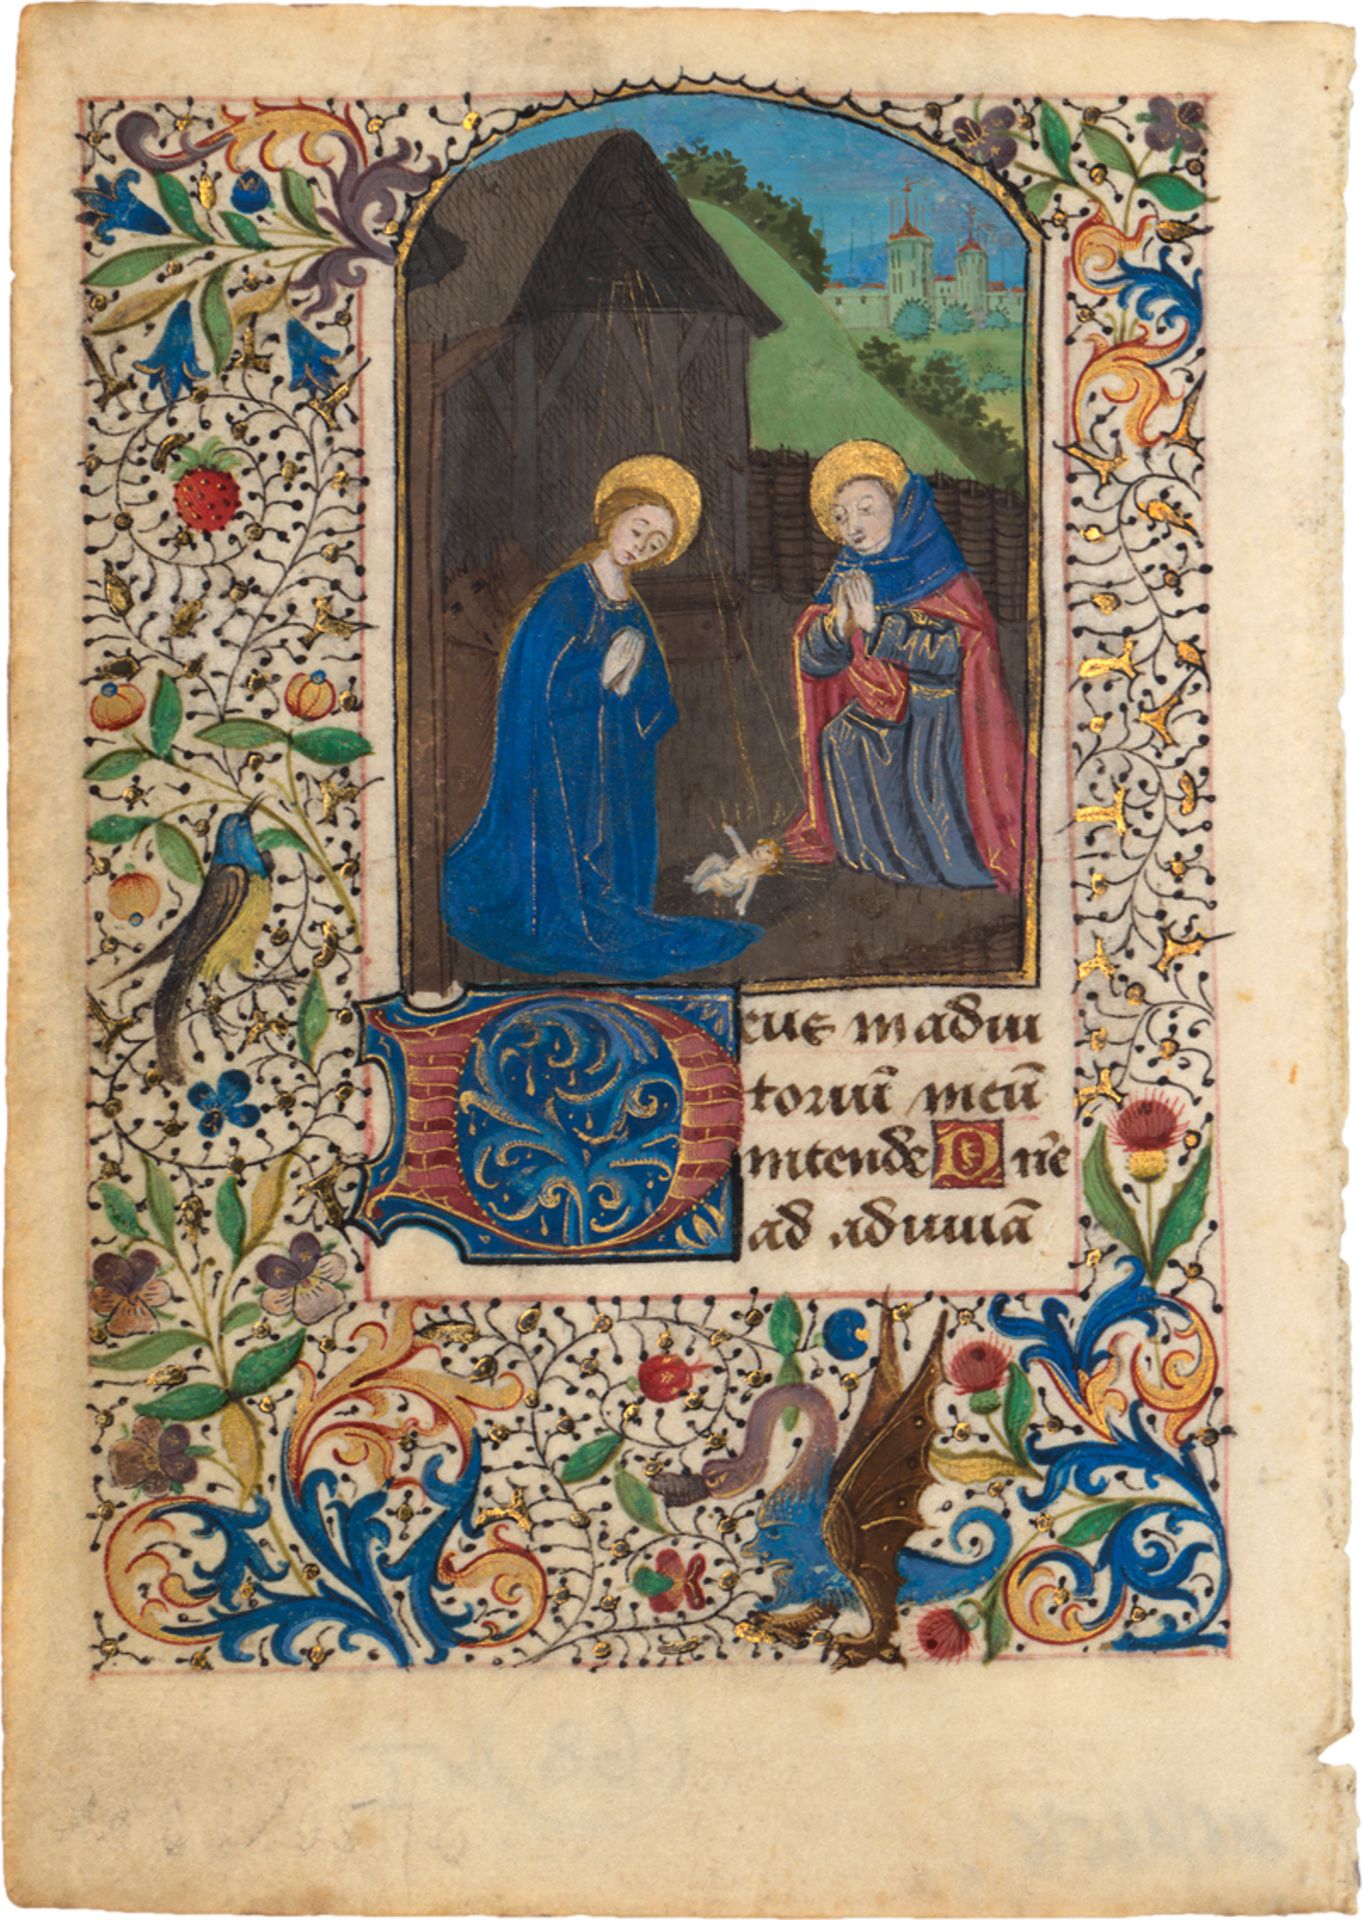 Deus in adiu
toriuȝ meū
intende Dn̄e
ad adiuuā